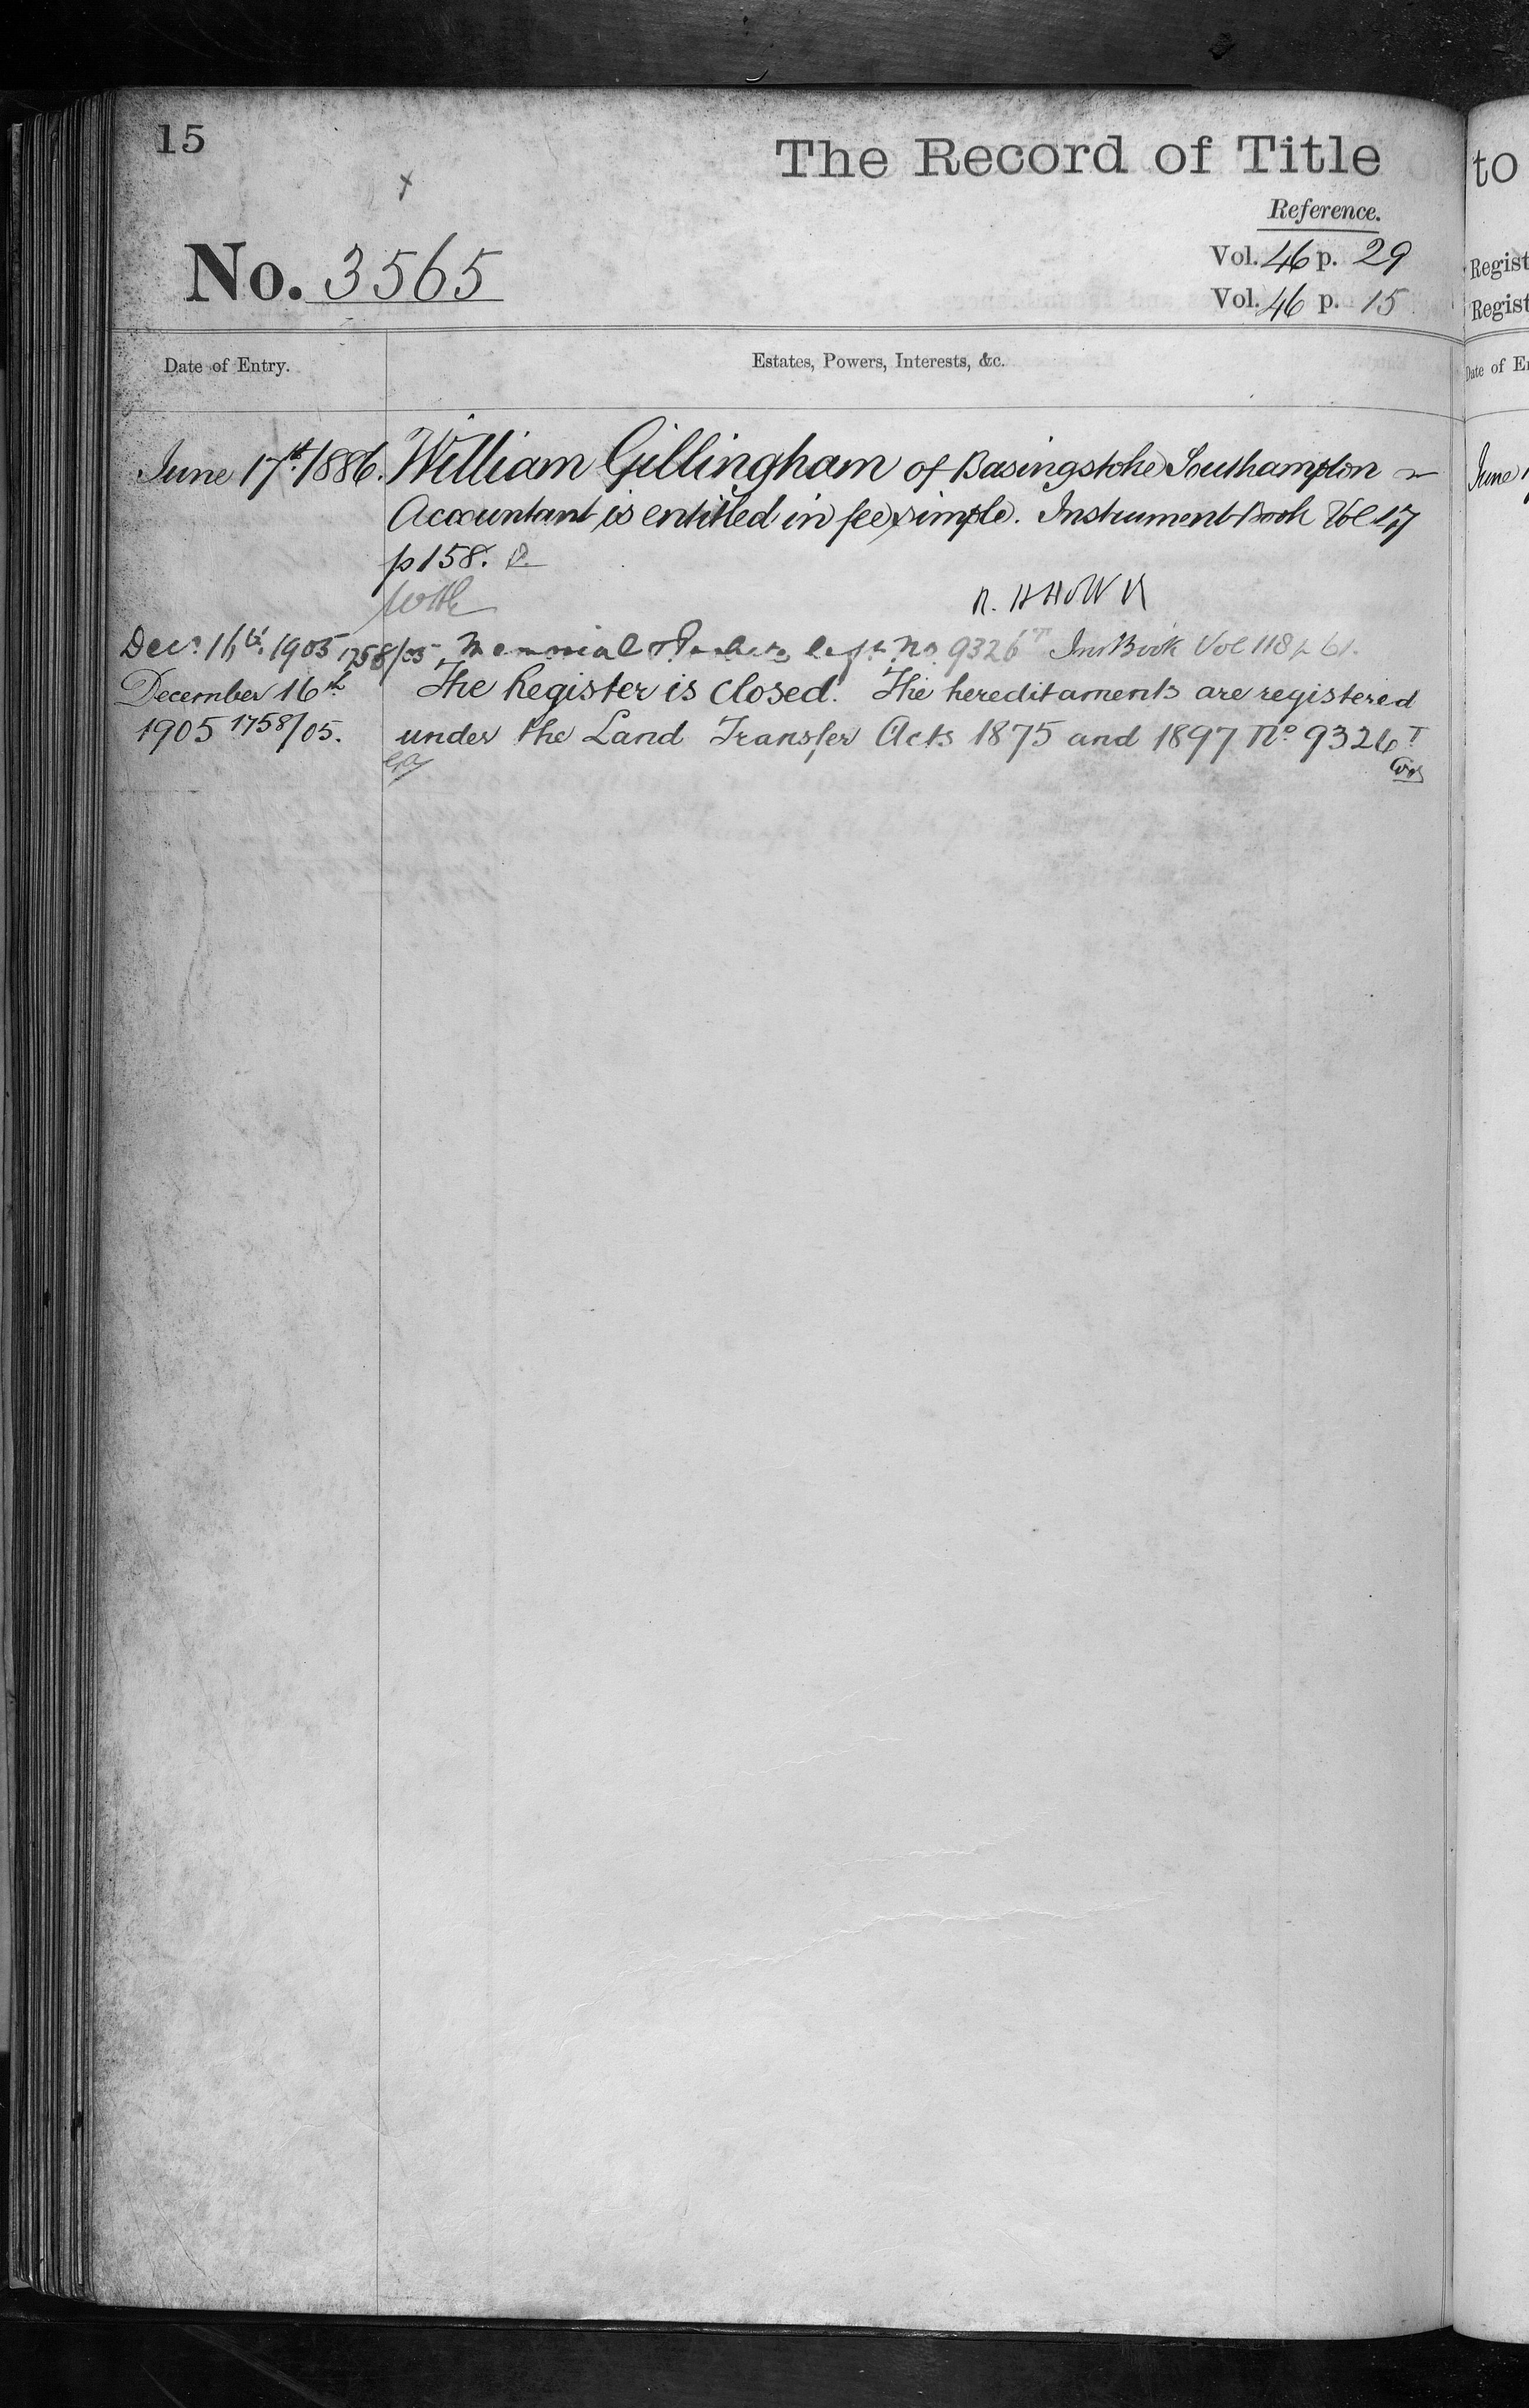 15
The Record of Title
to
Reference.
No. 3565
Vol. 46 p. 29
Vol. 46 p. 15
Regist
Regist
Date of Entry.
Estates, Powers, Interests, &c.
Date of E
June 17th 1886. William Gillingham of Basingstoke Southampton
June 1
Accountant is entitled in fee simple. Instrument Book Vol 17
p 158.
Decr. 16th 1905 1758/05 Memorial left No 9326 T Ins Book Vol 118 p 61.
December 16th The Register is closed. The hereditaments are registered
1905 1758/05. under the Land Transfer Acts 1875 and 1897 No 9326 T